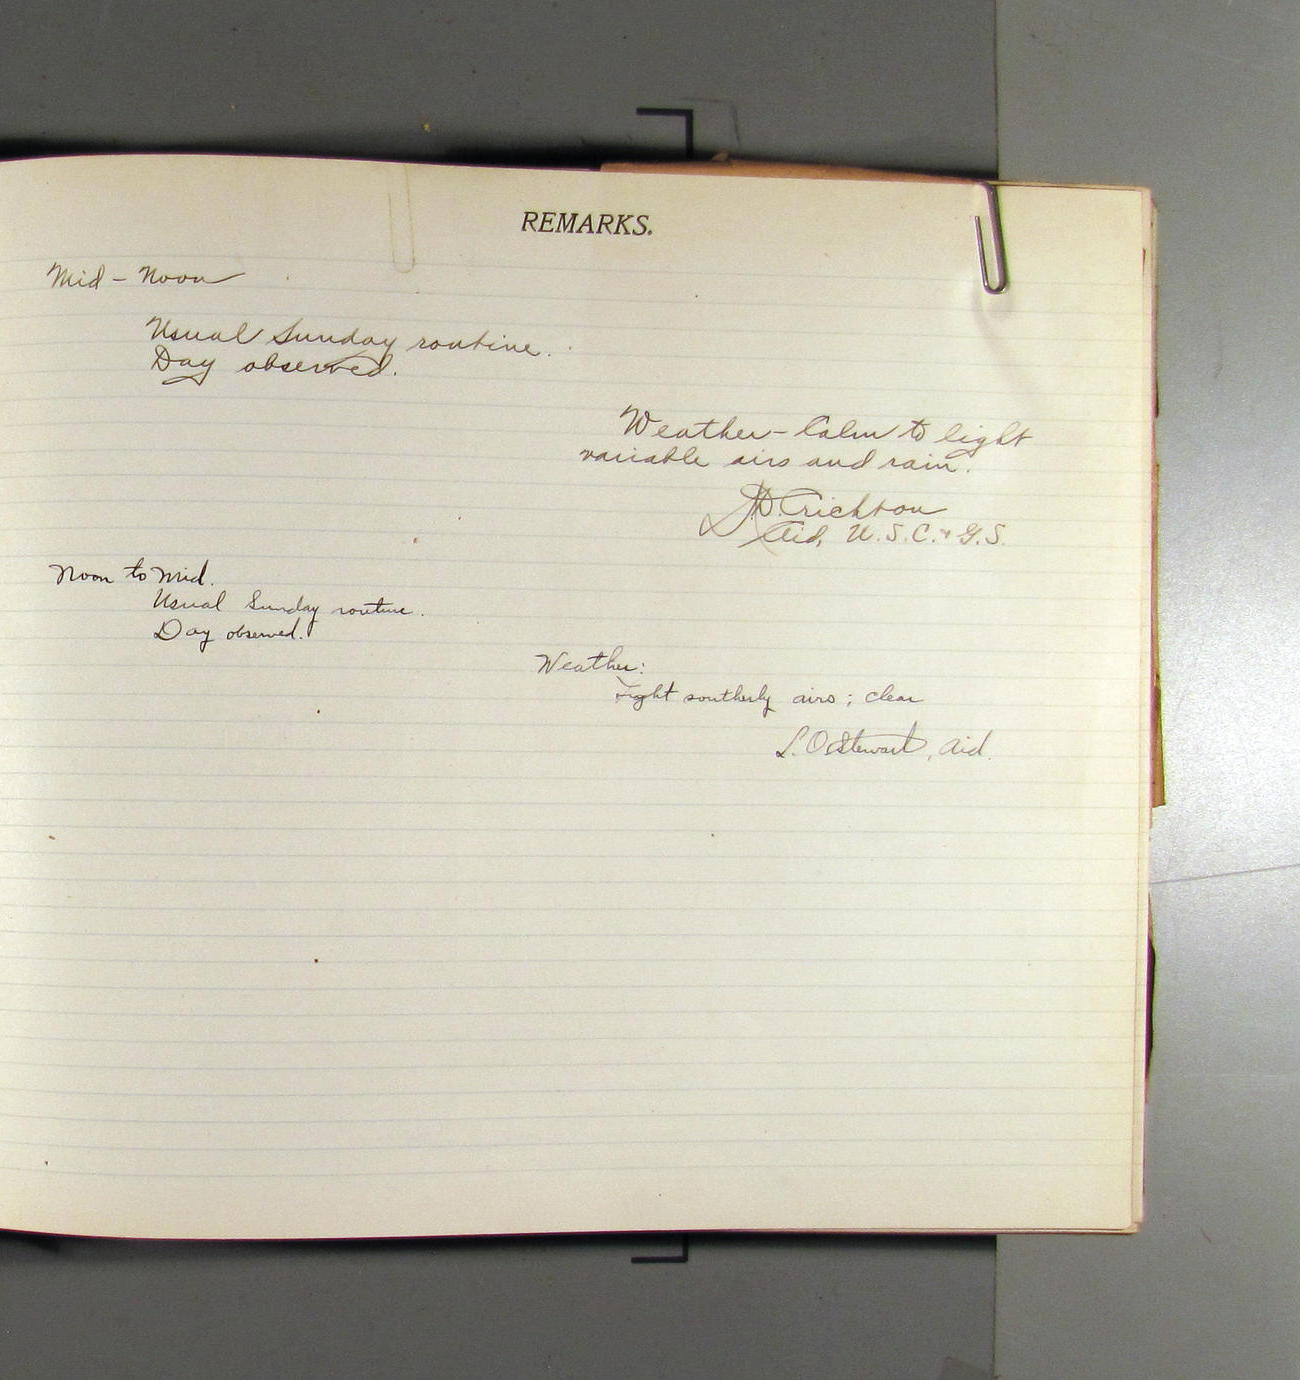 REMARKS.
Mid - Noon
Usual Sunday routine.
Day observed.
Weather - Calm to light
variable airs and rain.
D. Crichton
Aid, U.S.C. & G.S.
Noon to Mid.
Usual Sunday routine.
Day observed.
Weather:
Light southerly airs; clear
L.O. Stewart, Aid.